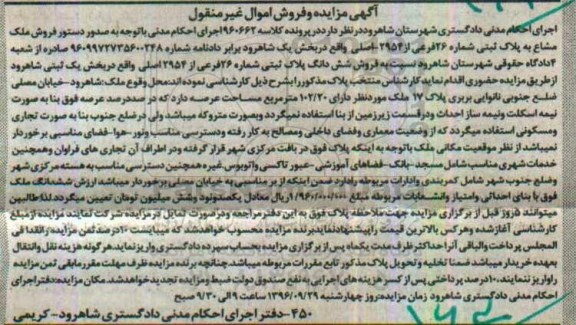 آگهی مزایده و فروش اموال غیر منقول
اجرای احکام مدنی دادگستری شهرستان شاهرود در نظر دارد در پرونده کلاسه ۹۶۰۶۶۲ اجرای احکام مدنی با توجه به صدور دستور فروش ملک
مشاع به پلاک ثبتی شماره ۲۶ فرعی از ۲۹۵۴ - اصلی واقع در بخش یک شاهرود برابر دادنامه شماره ۹۶۰۹۹۷۲۷۳۵۶۰۰۳۴۸ صادره از شعبه
۴ دادگاه حقوقی شهرستان شاهرود نسبت به فروش شش دانگ پلاک ثبتی شماره ۲۶ فرعی از ۲۹۵۴ اصلی واقع در بخش یک ثبتی شاهرود
از طریق مزایده حضوری اقدام نماید کارشناس منتخب پلاک مذکور را بشرح ذیل کارشناسی نموده اند: محل وقوع ملک: شاهرود - خیابان مصلی
ضلع جنوبی نانوایی بربری پلاک ۱۷ ملک مورد نظر دارای ۱۰۲/۲۰ متر مربع مساحت عرصه دارد که در صد در صد عرصه فوق بنا به صورت
نیمه اسکلت و نیمه ساز احداث و در قسمت زیرزمین از بنا استفاده نمیگردد و بصورت متروکه میباشد ولی در ضلع جنوب بنا به صورت تجاری
و مسکونی استفاده میگردد که از وضعیت معماری و فضای داخلی و مصالح به کار رفته و دسترسی مناسب و نور - هوا - فضای مناسبی برخوردار
نمیباشد از نظر موقعیت مکانی ملک با توجه به اینکه پلاک فوق در بافت مرکزی شهر قرار گرفته و در اطراف آن تجاری های فراوان و همچنین
خدمات شهری مناسب شامل مسجد - بانک - فضاهای آموزشی - عبور تاکسی و اتوبوس غیره همچنین دسترسی مناسب به هسته مرکزی شهر
و ضلع جنوب شهر شامل کمربندی و ادارات مربوطه را دارد ضمن اینکه از بر مناسبی به خیابان مصلی برخوردار میباشد ارزش ششدانگ ملک
فوق با بنای احداثی و امتیاز و انشعابات مربوطه مبلغ ۱/۹۶۰/۰۰۰/۰۰۰ ریال معادل یکصد و نود و شش میلیون تومان تعیین میگردد لذا طالبین
میتوانند ۵ روز قبل از برگزاری مزایده جهت ملاحظه پلاک فوق به این دفتر مراجعه و در صورت تمایل در مزایده شرکت نمایند مزایده از مبلغ
کارشناسی آغاز شده و هر کس بالاترین قیمت را پیشنهاد نماید برنده مزایده محسوب خواهد شد که میبایست ۱۰ درصد ثمن مزایده را نقدا فی
المجلس پرداخت و الباقی آنرا حداکثر ظرف مدت یکماه پس از برگزاری مزایده بحساب سپرده دادگستری واریز نماید هر گونه هزینه نقل و انتقال
بعهده خریدار میباشد ضمنا تخلیه و تحویل پلاک مذکور تابع مقررات مربوطه میباشد. چنانچه برنده مزایده ظرف مهلت مقرر مابقی ثمن مزایده
را واریز ننمایند، ۱۰ درصد پرداختی پس از کسر هزینه های اجرایی به نفع صندوق دولت ضبط و مزایده تجدید خواهد شد. مکان مزایده: دفتر اجرای
احکام مدنی دادگستری شاهرود زمان مزایده: روز چهارشنبه ۱۳۹۶/۰۹/۲۹ ساعت ۹ الی ۹/۳۰ صبح
۴۵۰ - دفتر اجرای احکام مدنی دادگستری شاهرود - کریمی